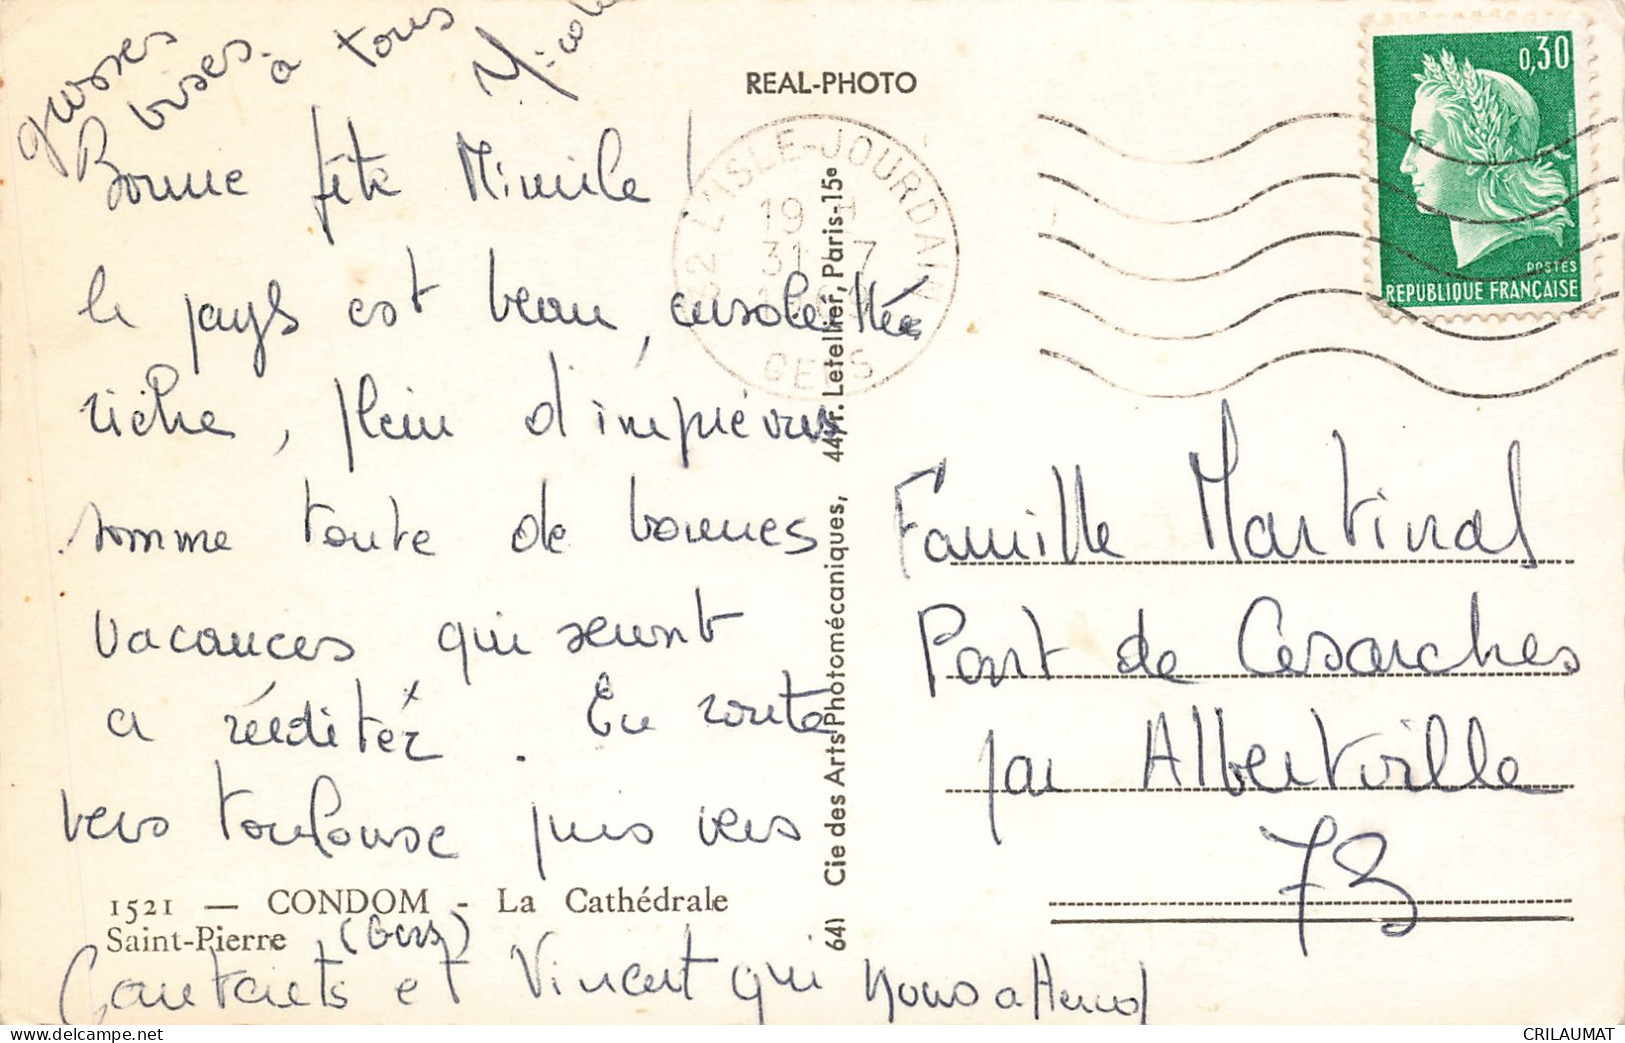 grosses
bises
à tous
Nicole
Bonne fête Mimile !
le pays est beau, ensoleillé
riche, plein d'imprévus
somme toute de bonnes
vacances qui seront
a rééditer. En route
vers Toulouse puis vers
1521 — CONDOM - La Cathédrale
Saint-Pierre
(Gers)
et Vincent qui nous attend
REAL-PHOTO
32 L'ISLE-JOURDAIN
19 H
31 - 7
GERS
641 Cie des Arts Photomécaniques, 44, r. Letellier, Paris-15e
0,30
POSTES
REPUBLIQUE FRANÇAISE
Famille Martinal
Pont de Cesarches
par Albertville
73
CRILAUMAT